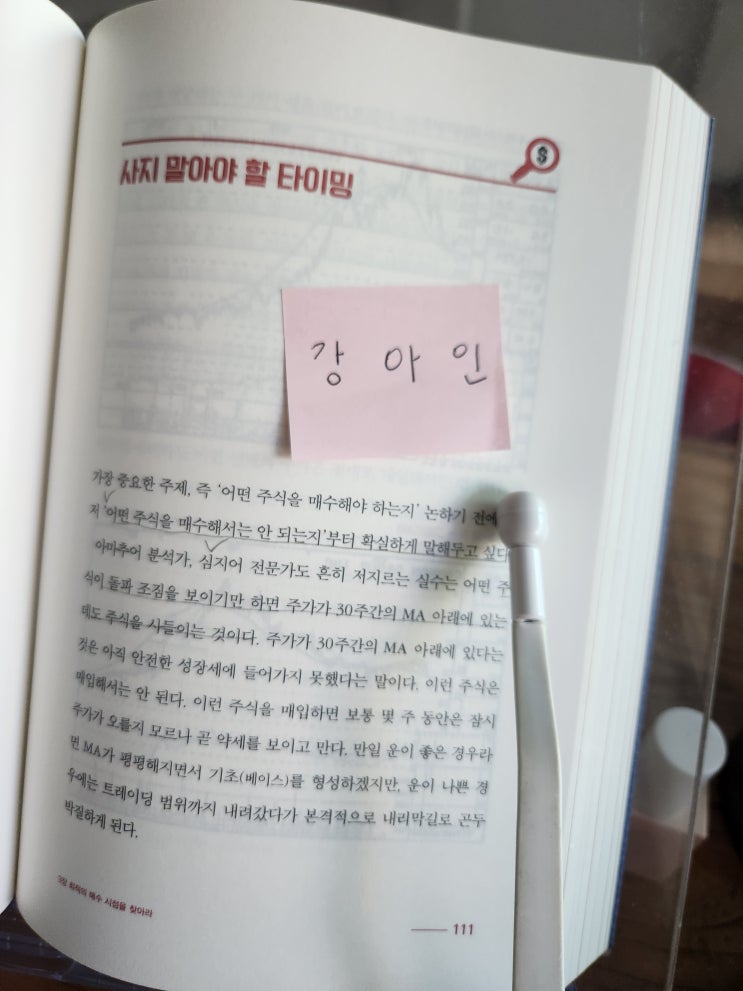 사지 말아야 할 타이밍
강 아 인
가장 중요한 주제, 즉 '어떤 주식을 매수해야 하는지' 논하기 전에
저 '어떤 주식을 매수해서는 안 되는지'부터 확실하게 말해두고 싶다
아마추어 분석가, 심지어 전문가도 흔히 저지르는 실수는 어떤 주
식이 돌파 조짐을 보이기만 하면 주가가 30주간의 MA 아래에 있는
데도 주식을 사들이는 것이다. 주가가 30주간의 MA 아래에 있다는
것은 아직 안전한 성장세에 들어가지 못했다는 말이다. 이런 주식은
매입해서는 안 된다. 이런 주식을 매입하면 보통 몇 주 동안은 잠시
주가가 오를지 모르나 곧 약세를 보이고 만다. 만일 운이 좋은 경우라
면 MA가 평평해지면서 기초(베이스)를 형성하겠지만, 운이 나쁜 경
우에는 트레이딩 범위까지 내려갔다가 본격적으로 내리막길로 곤두
박질하게 된다.
3장 최적의 매수 시점을 찾아라
111